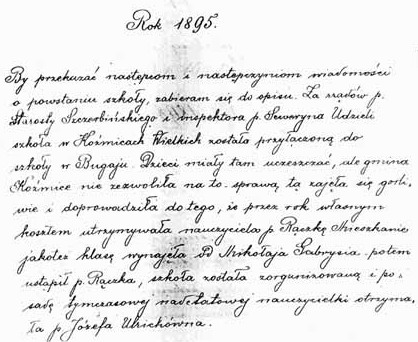 Rok 1895.
By przekazać następcom i następczyniom wiadomości
o powstaniu szkoły, zabieram się do opisu. Za rządów p.
Starosty Szczerbińskiego i inspektora p. Seweryna Udzieli
szkoła w Koźmicach Wielkich została przyłączoną do
szkoły w Bugaju. Dzieci miały tam uczęszczać, ale gmina
Koźmice nie zezwoliła na to. sprawą tą zajęła się gorli,
wie i doprowadziła do tego, że przez rok własnym
kosztem utrzymywała nauczyciela p. Rączkę Mieszkanie
jakoteż klasę wynajęła od Mikołaja Gabrysia. potem
ustąpił p. Rączka, szkoła została zorganizowaną i po,
sadę tymczasowej nadetatowej nauczycielki otrzyma,
ła p. Józefa Ulrichówna.